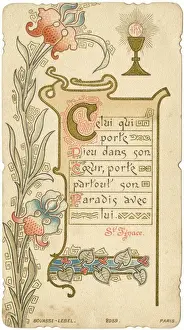 Celui qui
porte
Dieu dans son
Cœur, porte
partout son
Paradis avec
lui.
St Ignace.
BOUASSE-LEBEL. 8069. PARIS